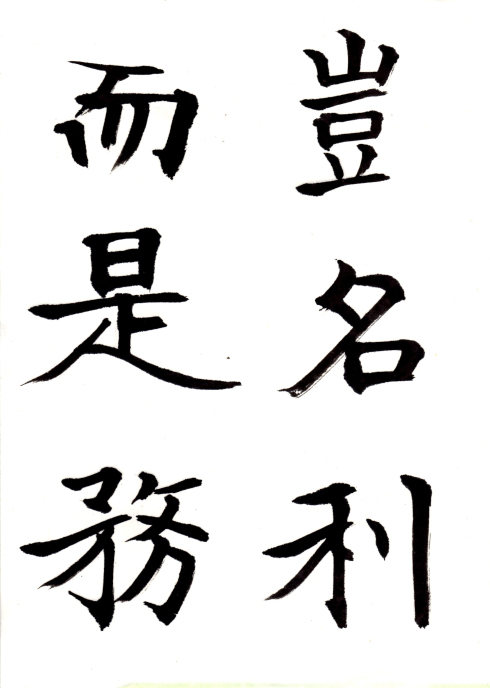 豈名利
而是務